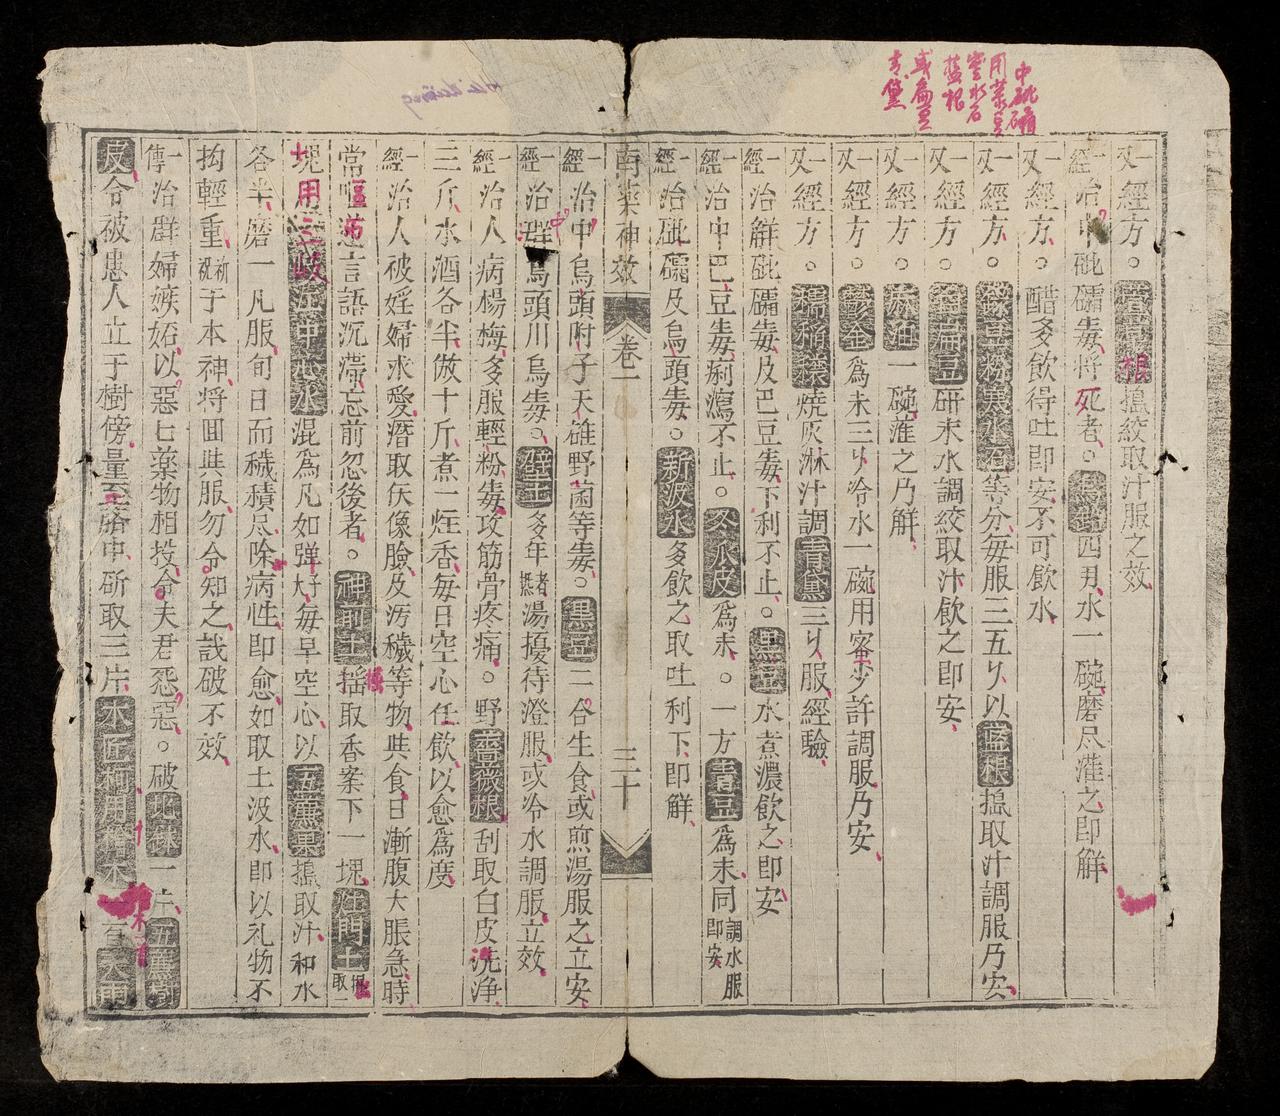 中砒礵
用菉豆
寒水石
藍根
或扁豆
青黛
一又經方。根搗絞取汁服之效
一經治中砒礵毒将死者。烏桕四月水一碗磨尽灌之即觧
一又經方。醋多飲得吐即安不可飲水
一又經方。菉豆粉寒水石等分每服三五刂以藍根搗取汁調服乃安
一又經方。白扁豆研末水調絞取汁飲之即安
一又經方。麻油一碗灌之乃觧
一又經方。鬱金為末三刂冷水一碗用蜜少許調服乃安
一又經方。稻稈燒灰淋汁調青黛三刂服經驗
一經治觧砒礵毒及巴豆毒下利不止。黒豆水煮濃飲之即安
一經治中巴豆毒痢瀉不止。冬瓜皮為末。一方青豆為末同調水服即安
一經治砒礵及烏頭毒。新汲水多飲之取吐利下即觧
南薬神效 卷一 三十
一經治中烏頭附子天雄野菌等毒。黒豆二合生食或煎湯服之立安
一經治烏頭川烏毒。壁土多年者湯擾待澄服或冷水調服立效
一經治人病楊梅多服輕粉毒攻筋骨疼痛。野薔薇根刮取白皮洗浄
三斤水酒各半倣十斤煮一炷香每日空心任飲以愈為度
一經治人被婬婦求愛潛取仸像臉及污穢等物共食日漸腹大脹急時
常言語沉滯忘前忽後者。神前土揺取香案下一塊灶門土掘取一
塊用三岐混為凡如弹好每早空心以五薫果搗取汁和水
各半磨一凡服旬日而穢積尽除病性即愈如取土汲水即以礼物不
拘輕重祝祈于本神将囬共服勿令知之説破不效
一傳治群婦嫉妬以惡七薬物相投令夫君怨惡。破一片五薫樹
皮令被患人立于樹傍量至臍中斫取三片木匠天雨